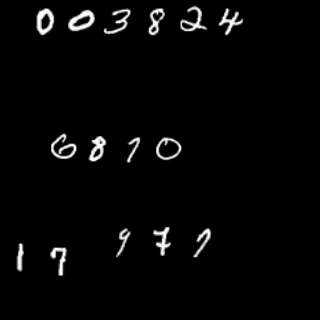 003824
6810
17 977